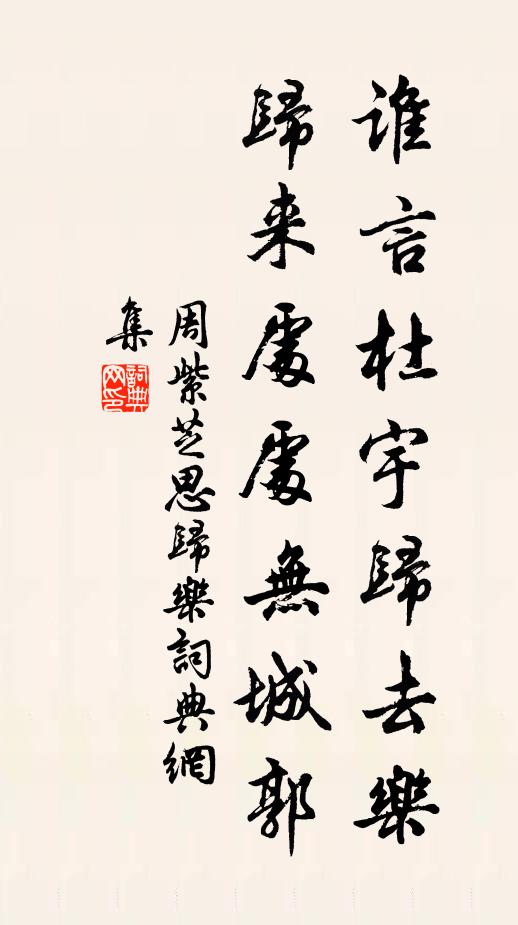 誰言杜宇歸去樂
歸来處處無城郭
周紫芝思歸樂詞典網
集
詞典網印